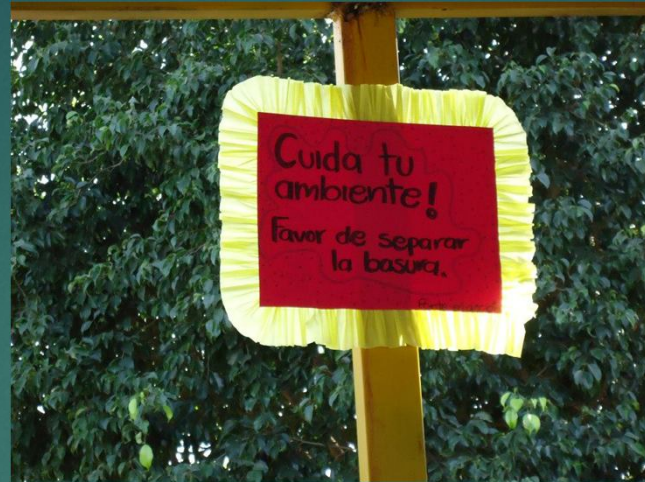 Cuida tu
ambiente!
Favor de separar
la basura.